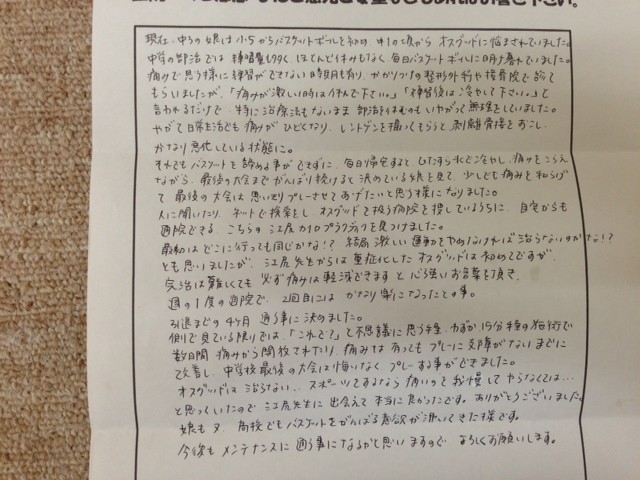 現在、中3の娘は小5からバスケットボールを初め 中1の頃から オスグッドに悩まされていました。
中学の部活では 練習量も多く ほとんど休みもなく 毎日バスケットボールに明け暮れていました。
痛みで思う様に練習ができない時期も有り、かかりつけの整形外科や接骨院で診て
もらいましたが、「痛みが激しい時は休んで下さい。」「練習後は冷やして下さい。」と
言われるだけで 特に治療法もないまま 部活を休むのもいやがって無理をしていました。
やがて日常生活でも 痛みが ひどくなり、レントゲンを撮ってもらうと 剥離骨接をおこし、
かなり悪化している状態に。
それでも バスケットを諦める事ができずに、毎日帰宅すると ひたすら氷で冷やし、痛みをこらえ
ながら、最後の大会までがんばり続けると決めている娘を見て、少しでも痛みを和らげ
て 最後の大会は思い切りプレーさせてあげたいと思う様になりました。
人に聞いたり、ネットで検索をし、オスグッドを扱う病院を探しているうちに、自宅からも
通院できる、こちらの江尻カイロプラクティックを見つけました。
最初は どこに行っても同じかな!? 結局 激しい運動をやめなければ治らないのかな!?
とも思いましたが、江尻先生からは 重症化したオスグッドは初めてですが、
完治は難しくても 必ず痛みは軽減できます と心強いお言葉を頂き、
週の1度の通院で、2回目には かなり楽になったとの事。
引退までの4ヶ月 通う事に決めました。
側で見ている限りでは、「これで?」って不思議に思う程、わずか15分程の施術で
数日間 痛みから開放されたり、痛みは有ってもプレーに支障がないまでに
改善し、中学校最後の大会は悔いなく プレーする事ができました。
オスグッドは治らない、スポーツをするなら痛いって我慢してやらなくては…
と思っていたので 江尻先生に出会えて本当に良かったです。ありがとうございました。
娘も又、高校でもバスケットをがんばる意欲が沸いてきた様です。
今後も メンテナンスに通う事になるかと思いますので よろしくお願いします。